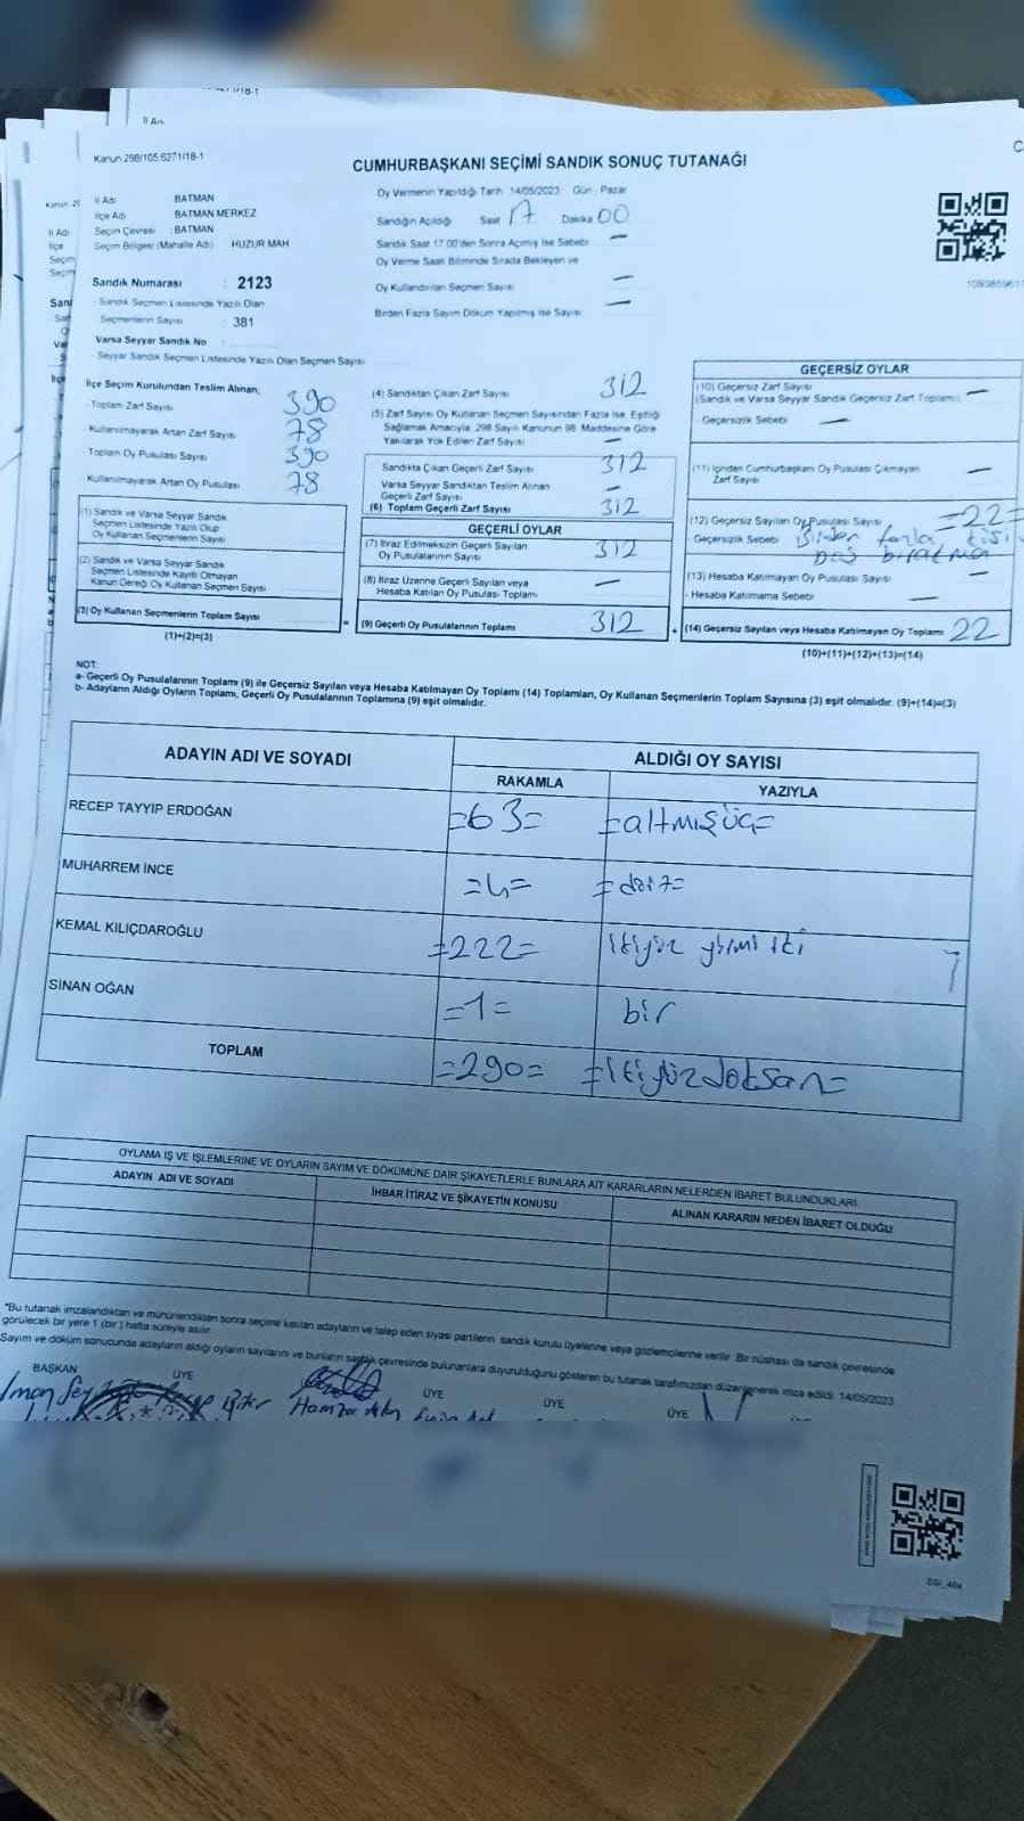 Kanun 298/105.5271/18-1
CUMHURBAŞKANI SEÇİMİ SANDIK SONUÇ TUTANAĞI
İl Adı BATMAN
İlçe Adı BATMAN MERKEZ
Seçim Çevresi : BATMAN
Seçim Bölgesi (Mahalle Adı) HUZUR MAH
Sandık Numarası : 2123
Sandık Seçmen Listesinde Yazılı Olan
Seçmenlerin Sayısı 381
Varsa Seyyar Sandık No
Seyyar Sandık Seçmen Listesinde Yazılı Olan Seçmen Sayısı
Oy Vermenin Yapıldığı Tarih 14/05/2023 Gün : Pazar
Sandığın Açıldığı Saat 17 Dakika 00
Sandık Saat 17:00'den Sonra Açılmış İse Sebebi —
Oy Verme Saati Bitiminde Sırada Bekleyen ve
Oy Kullandırılan Seçmen Sayısı —
Birden Fazla Sayım Döküm Yapılmış ise Sayısı —
İlçe Seçim Kurulundan Teslim Alınan;
- Toplam Zarf Sayısı 390
- Kullanılmayarak Artan Zarf Sayısı 78
- Toplam Oy Pusulası Sayısı 390
- Kullanılmayarak Artan Oy Pusulası 78
(1) Sandık ve Varsa Seyyar Sandık
Seçmen Listesinde Yazılı Olup
Oy Kullanan Seçmenlerin Sayısı
(2) Sandık ve Varsa Seyyar Sandık
Seçmen Listesinde Kayıtlı Olmayan
Kanun Gereği Oy Kullanan Seçmen Sayısı
(3) Oy Kullanan Seçmenlerin Toplam Sayısı
(1)+(2)=(3)
(4) Sandıktan Çıkan Zarf Sayısı 312
(5) Zarf Sayısı Oy Kullanan Seçmen Sayısından Fazla İse, Eşitliği
Sağlamak Amacıyla, 298 Sayılı Kanunun 98. Maddesine Göre
Yakılarak Yok Edilen Zarf Sayısı —
Sandıkta Çıkan Geçerli Zarf Sayısı 312
Varsa Seyyar Sandıktan Teslim Alınan
Geçerli Zarf Sayısı —
(6) Toplam Geçerli Zarf Sayısı 312
GEÇERLİ OYLAR
(7) İtiraz Edilmeksizin Geçerli Sayılan
Oy Pusulalarının Sayısı 312
(8) İtiraz Üzerine Geçerli Sayılan veya
Hesaba Katılan Oy Pusulası Toplamı —
(9) Geçerli Oy Pusulalarının Toplamı 312
GEÇERSİZ OYLAR
(10) Geçersiz Zarf Sayısı
(Sandık ve Varsa Seyyar Sandık Geçersiz Zarf Toplamı) —
- Geçersizlik Sebebi —
(11) İçinden Cumhurbaşkanı Oy Pusulası Çıkmayan
Zarf Sayısı —
(12) Geçersiz Sayılan Oy Pusulası Sayısı =22=
Geçersizlik Sebebi Birden fazla kişi
boş bırakma
(13) Hesaba Katılmayan Oy Pusulası Sayısı —
- Hesaba Katılmama Sebebi —
(14) Geçersiz Sayılan veya Hesaba Katılmayan Oy Toplamı 22
(10)+(11)+(12)+(13)=(14)
NOT:
a- Geçerli Oy Pusulalarının Toplamı (9) ile Geçersiz Sayılan veya Hesaba Katılmayan Oy Toplamı (14) Toplamları, Oy Kullanan Seçmenlerin Toplam Sayısına (3) eşit olmalıdır. (9)+(14)=(3)
b- Adayların Aldığı Oyların Toplamı, Geçerli Oy Pusulalarının Toplamına (9) eşit olmalıdır.
ADAYIN ADI VE SOYADI ALDIĞI OY SAYISI
RAKAMLA YAZIYLA
RECEP TAYYIP ERDOĞAN =63= =altmışüç=
MUHARREM İNCE =4= =dört=
KEMAL KILIÇDAROĞLU =222= ikiyüz yirmi iki
SINAN OĞAN =1= bir
TOPLAM =290= =ikiyüzdoksan=
OYLAMA İŞ VE İŞLEMLERİNE VE OYLARIN SAYIM VE DÖKÜMÜNE DAİR ŞİKAYETLERLE BUNLARA AİT KARARLARIN NELERDEN İBARET BULUNDUKLARI
ADAYIN ADI VE SOYADI İHBAR İTİRAZ VE ŞİKAYETİN KONUSU ALINAN KARARIN NEDEN İBARET OLDUĞU
*Bu tutanak imzalandıktan ve mühürlendikten sonra seçime katılan adayların ve talep eden siyasi partilerin sandık kurulu üyelerine veya gözlemcilerine verilir. Bir nüshası da sandık çevresinde
görülecek bir yere 1 (bir) hafta süreyle asılır.
Sayım ve döküm sonucunda adayların aldığı oyların sayılarını ve bunların sandık çevresinde bulunanlara duyurulduğunu gösteren bu tutanak tarafımızdan düzenlenerek imza edildi. 14/05/2023
BAŞKAN ÜYE ÜYE ÜYE ÜYE